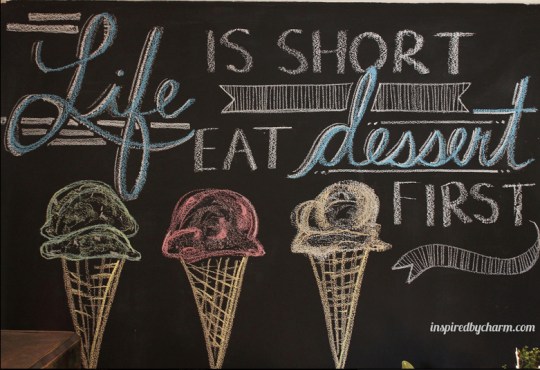 Life IS SHORT
EAT dessert
FIRST
inspiredbycharm.com